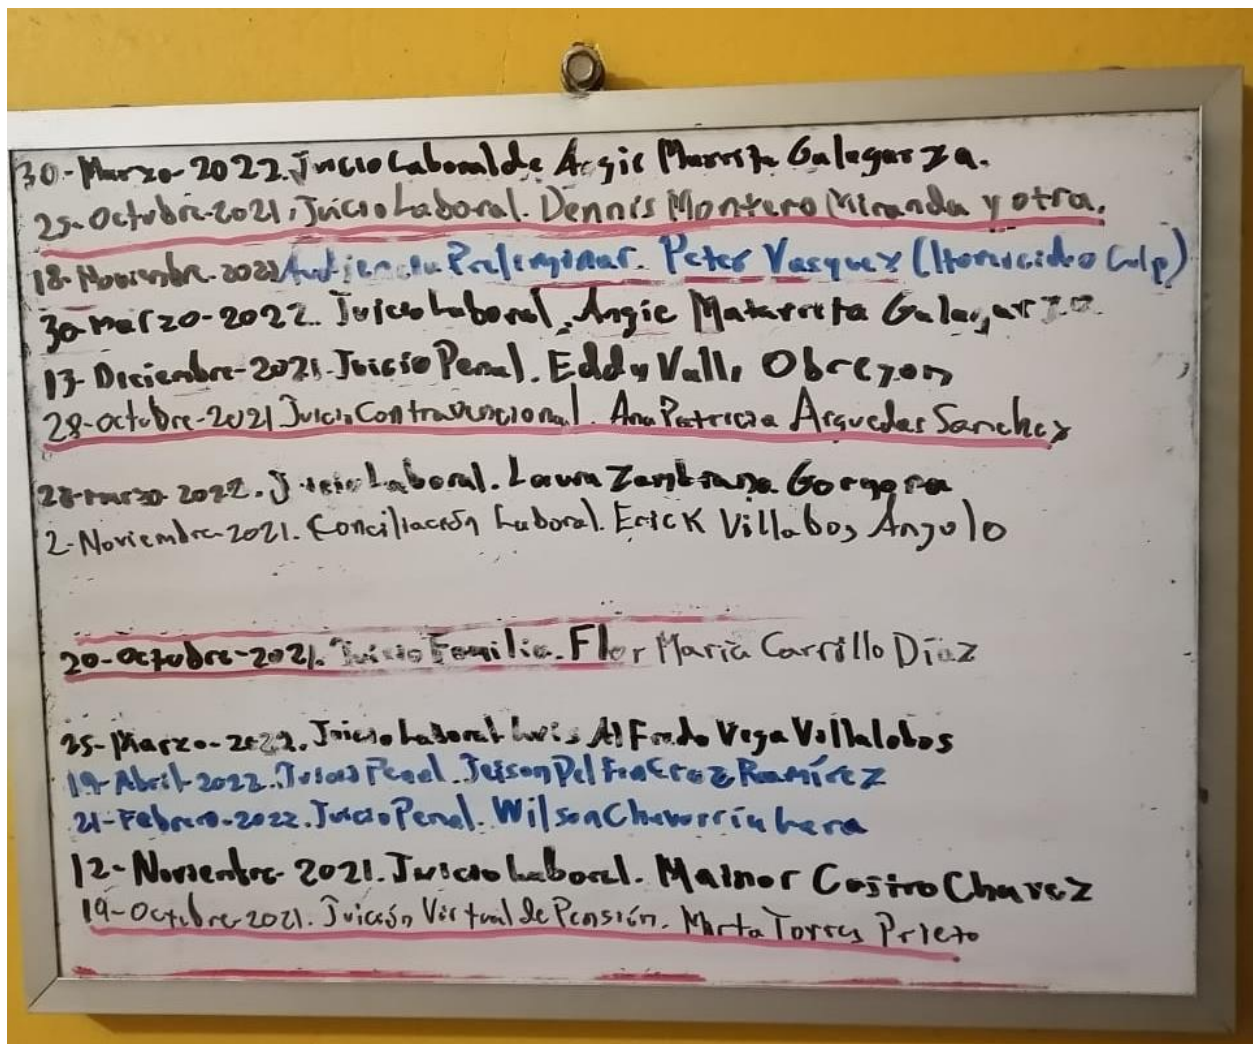 30-Marzo-2022. Juicio Laboral de Angie Marrita Galagarza.
25-Octubre-2021. Juicio Laboral. Dennis Montero Miranda y otra.
18-Noviembre-2021 Audiencia Preliminar. Peter Vasquez (Homicidio Culp)
30-Marzo-2022. Juicio Laboral. Angie Matarrita Galagarza.
13-Diciembre-2021. Juicio Penal. Eddy Valle Obregon
28-Octubre-2021 Juicio Contravencional. Ana Patricia Arguedas Sanchez
28-marzo-2022. Juicio Laboral. Laura Zambrana Gongora
2-Noviembre-2021. Conciliación Laboral. Erick Villabos Angulo
20-Octubre-2021. Juicio Familia. Flor María Carrillo Díaz
25-Marzo-2022. Juicio Laboral Luis Alfredo Vega Villalobos
19-Abril-2022. Juicio Penal. Jeison Delfin Cruz Ramírez
21-Febrero-2022. Juicio Penal. Wilson Chavarría Lara
12-Noviembre-2021. Juicio Laboral. Mainor Castro Chavez
19-Octubre-2021. Juición Virtual de Pensión. Marta Torres Prieto